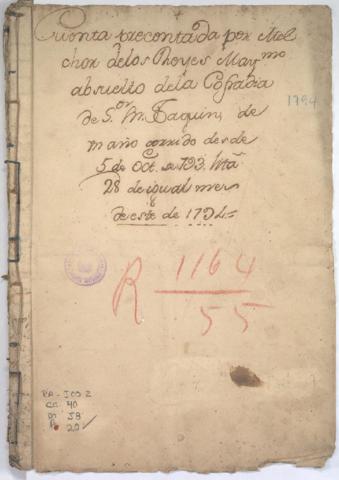 Cuenta precontada por Mel
chor delos Reyes Maymo
absuelto dela Cofradia
de S.or Sn Joaquin, de
un año corrido desde
5 de Oct.e de 793. hta
28 de igual mes
de este de 1794=
1794
R 1164
55
RA-JOS 2
CA. 40
58
20